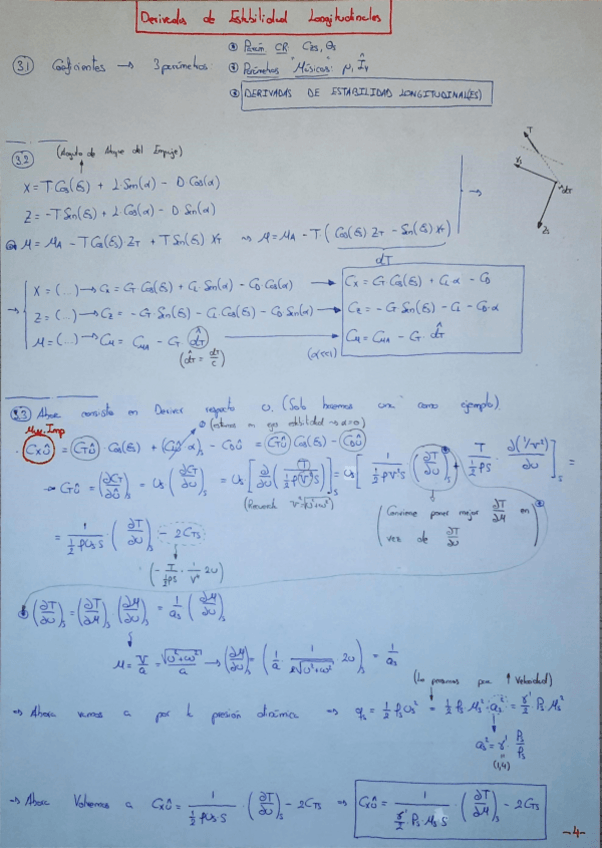 Derivadas de Estabilidad Longitudinales
3.1 Coeficientes → 3 parámetros
① Parám CR: C_zs, θ_s
② Parámetros "Másicos": μ, Î_y
③ DERIVADAS DE ESTABILIDAD LONGITUDINAL(ES)
3.2 (Ángulo de Ataque del Empuje)
X = T Cos(ε_s) + L Sen(α) - D Cos(α)
Z = -T Sen(ε_s) + L Cos(α) - D Sen(α)
M = M_A - T Cos(ε_s) Z_T + T Sen(ε_s) X_T → M = M_A - T (Cos(ε_s) Z_T - Sen(ε_s) X_T)
d_T
X = (...) → C_x = C_T Cos(ε_s) + C_L Sen(α) - C_D Cos(α) → C_x = C_T Cos(ε_s) + C_L α - C_D
Z = (...) → C_z = -C_T Sen(ε_s) - C_L Cos(ε_s) - C_D Sen(α) → C_z = -C_T Sen(ε_s) - C_L - C_D α
M = (...) → C_M = C_MA - C_T d̂_T → C_M = C_MA - C_T d̂_T
(d̂_T = d_T/c) (α<<1)
3.3 Ahora consiste en Derivar respecto u. (Solo haremos una como ejemplo)
(estamos en eje estabilidad → α=0)
C_xû = C_Tû · Cos(ε_s) + (C_Lû · α) - C_Dû = C_Tû Cos(ε_s) - C_Dû
→ C_Tû = (∂C_T/∂û)_s = u_s (∂C_T/∂u)_s = u_s [∂/∂u (T / ½ρV²S)]_s = u_s [1/(½ρV²S) (∂T/∂u)_s + T/(½ρS) · ∂(1/V²)/∂u]_s =
(Recuerda V = √(u²+w²))
(Conviene poner mejor ∂T/∂M en
vez de ∂T/∂u)
= 1/(½ρu_s S) (∂T/∂u)_s - 2C_Ts
(- T/(½ρS) · 1/V⁴ 2u)
(∂T/∂u)_s = (∂T/∂M)_s (∂M/∂u)_s = 1/a_s (∂M/∂u)_s
M = V/a = √(u²+w²)/a → (∂M/∂u)_s = (1/a · 1/(2√(u²+w²)) 2u)_s = 1/a_s
(Lo pasamos por ↑ Velocidad)
⇒ Ahora vamos a por la presión dinámica ⇒ q_s = ½ρ_s u_s² = ½ρ_s M_s² a_s² = γ/2 P_s M_s²
a_s² = γ P_s/ρ_s
(1,4)
⇒ Ahora Volvemos a C_xû = 1/(½ρu_s S) · (∂T/∂u)_s - 2C_Ts ⇒ C_xû = 1/(γ/2 P_s M_s S) · (∂T/∂M)_s - 2C_Ts
-4-